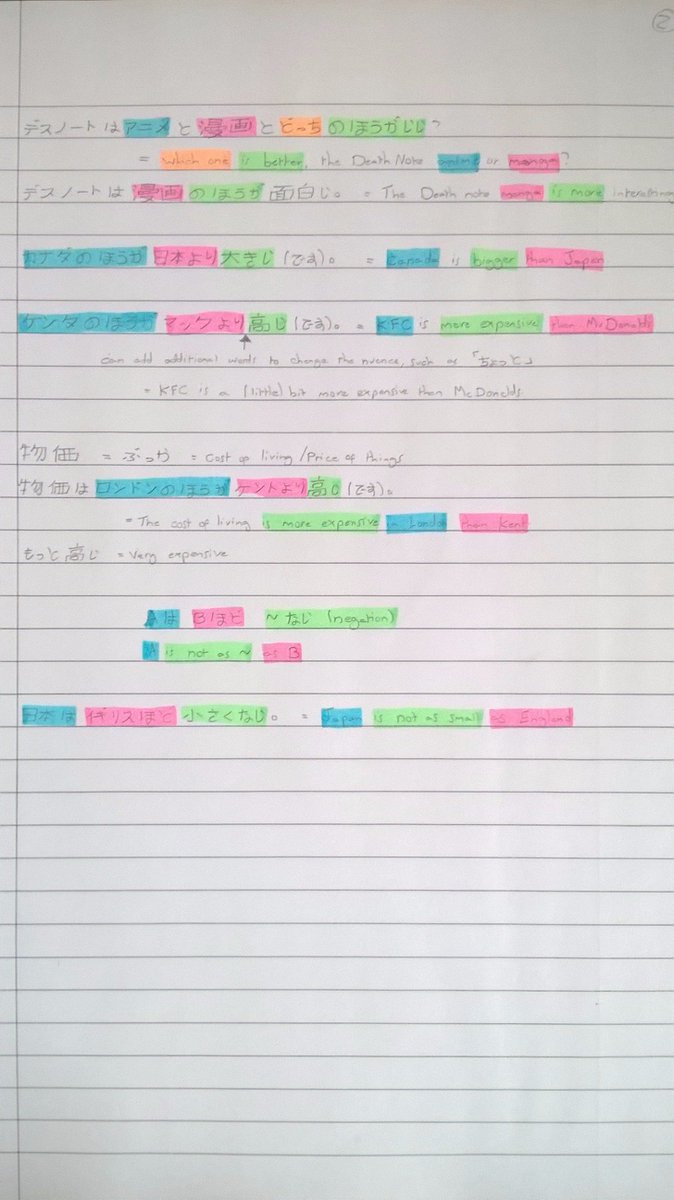 2
デスノートはアニメと漫画とどっちのほうがいい?
= which one is better, the Death Note anime or manga?
デスノートは漫画のほうが面白い。 = The Death note manga is more interesting
カナダのほうが日本より大きい(です)。 = Canada is bigger than Japan
ケンタのほうがマックより高い(です)。 = KFC is more expensive than McDonalds
can add additional words to change the nuence, such as 「ちょっと」
= KFC is a (little) bit more expensive than McDonalds
物価 = ぶっか = Cost of living/Price of things
物価はロンドンのほうがケントより高い(です)。
= The cost of living is more expensive in London than Kent
もっと高い = Very expensive
Aは Bほど ~ない (negation)
A is not as ~ as B
日本はイギリスほど小さくない。 = Japan is not as small as England